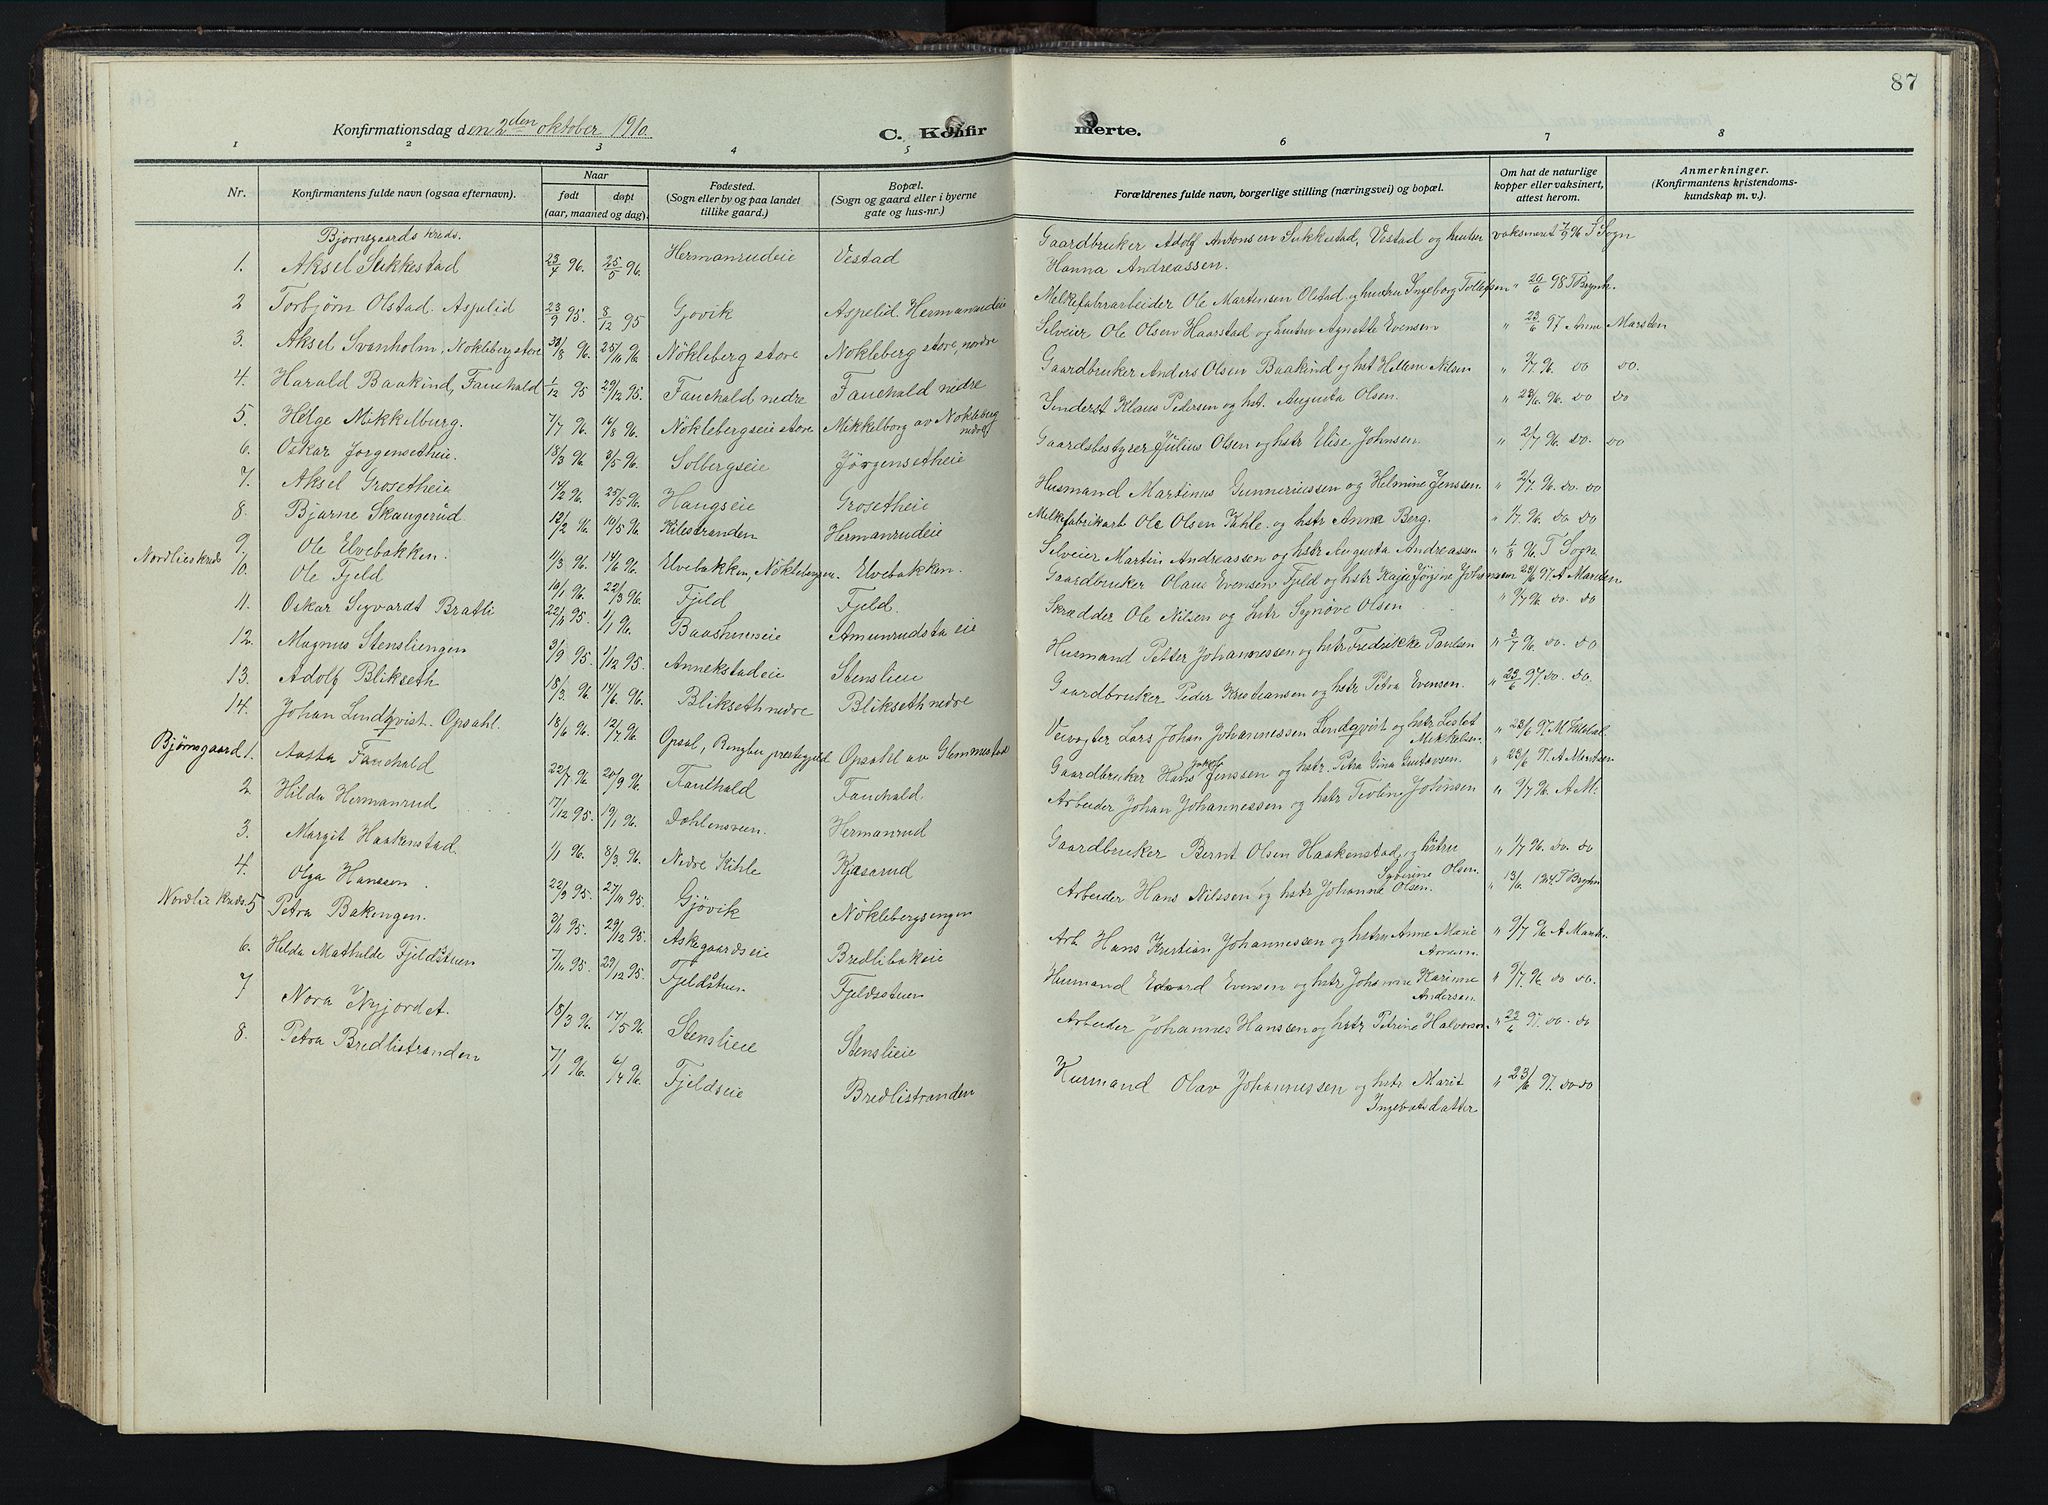 87
Konfirmationsdag den 2den oktober 1910.
C. Konfirmerte.
1 2 3 4 5 6 7 8
Nr. Konfirmantens fulde navn (ogsaa efternavn). Naar født døpt (aar, maaned og dag). Fødested. (Sogn eller by og paa landet tillike gaard.) Bopæl. (Sogn og gaard eller i byerne gate og hus-nr.) Forældrenes fulde navn, borgerlige stilling (næringsvei) og bopæl. Om hat de naturlige kopper eller vaksinert, attest herom. Anmerkninger. (Konfirmantens kristendoms-kundskap m. v.).
Bjørnsgaards kreds.
1. Aksel Sukkestad 23/4 96. 25/5 96. Hermanrudeie Vestad Gaardbruker Adolf Antonsen Sukkestad, Vestad og hustru Hanna Andreassen. vaksineret 7/9 96 T Sogn
2 Torbjørn Olstad, Aspelid 23/9 95. 8/12 95 Gjøvik Aspelid, Hermanrudeie Melkefabrarbeider Ole Martensen Olstad og hustru Ingeborg Tollefsen " 20/6 98 T Bryhn.
3. Aksel Svanholm, Nøkleberg store 30/8 96. 25/10 96 Nökleberg store Nökleberg store, nordre Selveier Ole Olsen Haarstad og hustru Agnette Evensen " 23/6 97 Anne Marsten
4. Harald Baakind, Fauchald 1/12 95 29/12 95. Fauchald nedre Fauchald nedre Gaardbruker Anders Olsen Baakind og hst Hellene Nilsen " 9/7 96. do do.
5. Helge Mikkelburg. 7/7 96 16/8 96. Nöklebergseie store Mikkelborg av Nökleberg nedre Inderst Klaus Pedersen og hst. Augusta Olsen. " 23/6. 96. do do
6. Oskar Jørgensetheie. 18/3 96 3/5 96. Solbergseie Jørgensetheie Gaardsbestyrer Julius Olsen og hstr Elise Johnsen " 2/7 96. do. do
7. Aksel Grosetheie 14/2 96. 25/5 96. Haugseie Grosetheie Husmand Martinus Gunneriussen og Helmine Jenssen. " 2/7 96. do. do
8 Bjarne Skaugerud 12/2 96. 19/5 96. Kilestranden Hermanrudeie Melkefabrikarb Ole Olsen Kihle og hstr Anna Berg. " 1/7. 96. do do
9. Ole Elvebakken. 11/3 96. 14/6 96. Elvebakken, Nökleberggen. Elvebakken. Selveier Martin Andreassen og hstr Augusta Andreassen " 1/8 96. T Sogn.
Nordlieskreds
10. Ole Fjeld 19/1 96. 22/3 96. Fjeld Fjeld. Gaardbruker Olaus Evensen Fjeld og hstr Kaja Jørgine Johansen 23/6 97. A Marsten
11. Oskar Sigvardt Bratli 22/11 95. 1/1 96. Baashuseie Amunrudsta eie Skrædder Ole Nilsen og hstr Synøve Olsen " 9/7 96. do. do
12. Magnus Stensliengen 3/9 95. 1/12 95. Annekstadeie Stenslieie Husmand Petter Johannessen og hstr Fredrikke Paulsen " 3/7 96. do. do
13. Adolf Blikseth 18/3 96. 14/6 96. Blikseth nedre Blikseth nedre Gaardbruker Peder Kristiansen og hstr Petra Evensen. " 23/6 97. do. do.
14. Johan Lindqvist. Opsahl. 18/6 96. 12/7 96. Opsal, Ringbu prestegjeld Opsahl av Glemmestad Veivogter Lars Johan Johannessen Lindqvist og hstr Lislet Mikkelsen. " 23/6 97. M Kilstal
Bjørnsgaard 1. Aasta Fauchald 22/7 96 20/9 96. Fauchald Fauchald Gaardbruker Hans Jenssen og hstr. Petra Gina Gustavsen. " 23/6 97. A Martsen
2. Hilda Hermanrud 17/12 95. 19/1 96. Dæhlensveen. Hermanrud Arbeider Johan Johannessen og hstr Teoline Johnsen " 9/7 96. A M.
3. Margit Haakenstad. 1/1 96. 8/3 96. Nedre Kihle Kjæsarud Gaardbruker Bernt Olsen Haakenstad og hstru Severine Olsen. " 1/7 96. do. do
4. Olga Hanssen. 22/9 95. 27/11 95. Gjövik Nöklebergsengen Arbeider Hans Nilssen og hstr Johanna Olsen. " 13/6. T Bryhn
Nordlie kreds. 5 Petra Bakengen. 3/11 95. 29/12 95. Askegaardseie Bredlibakeie Arb. Hans Kristian Johannessen og hstr Anne Marie Arnesen. " 9/7 96 A Mart.
6. Hilda Mathilde Fjeldstuen 7/10 95. 29/12 95. Fjeldstuen Fjeldsstuen Husmand Edvard Evensen og hstr Johanne Karinne Andersen. " 9/7. 96. do do.
7 Nora Nyjordet. 18/3 96. 17/5 96. Stenslieie Stenslieie Arbeider Johannes Hanssen og hstr Petrine Halvorsen. " 23/6 97. do. do
8. Petra Bredlistranden 7/1 96. 6/4 96. Fjeldseie Bredlistranden Husmand Olav Johannessen og hstr Marit Ingebretsdatter " 23/6 97. do do